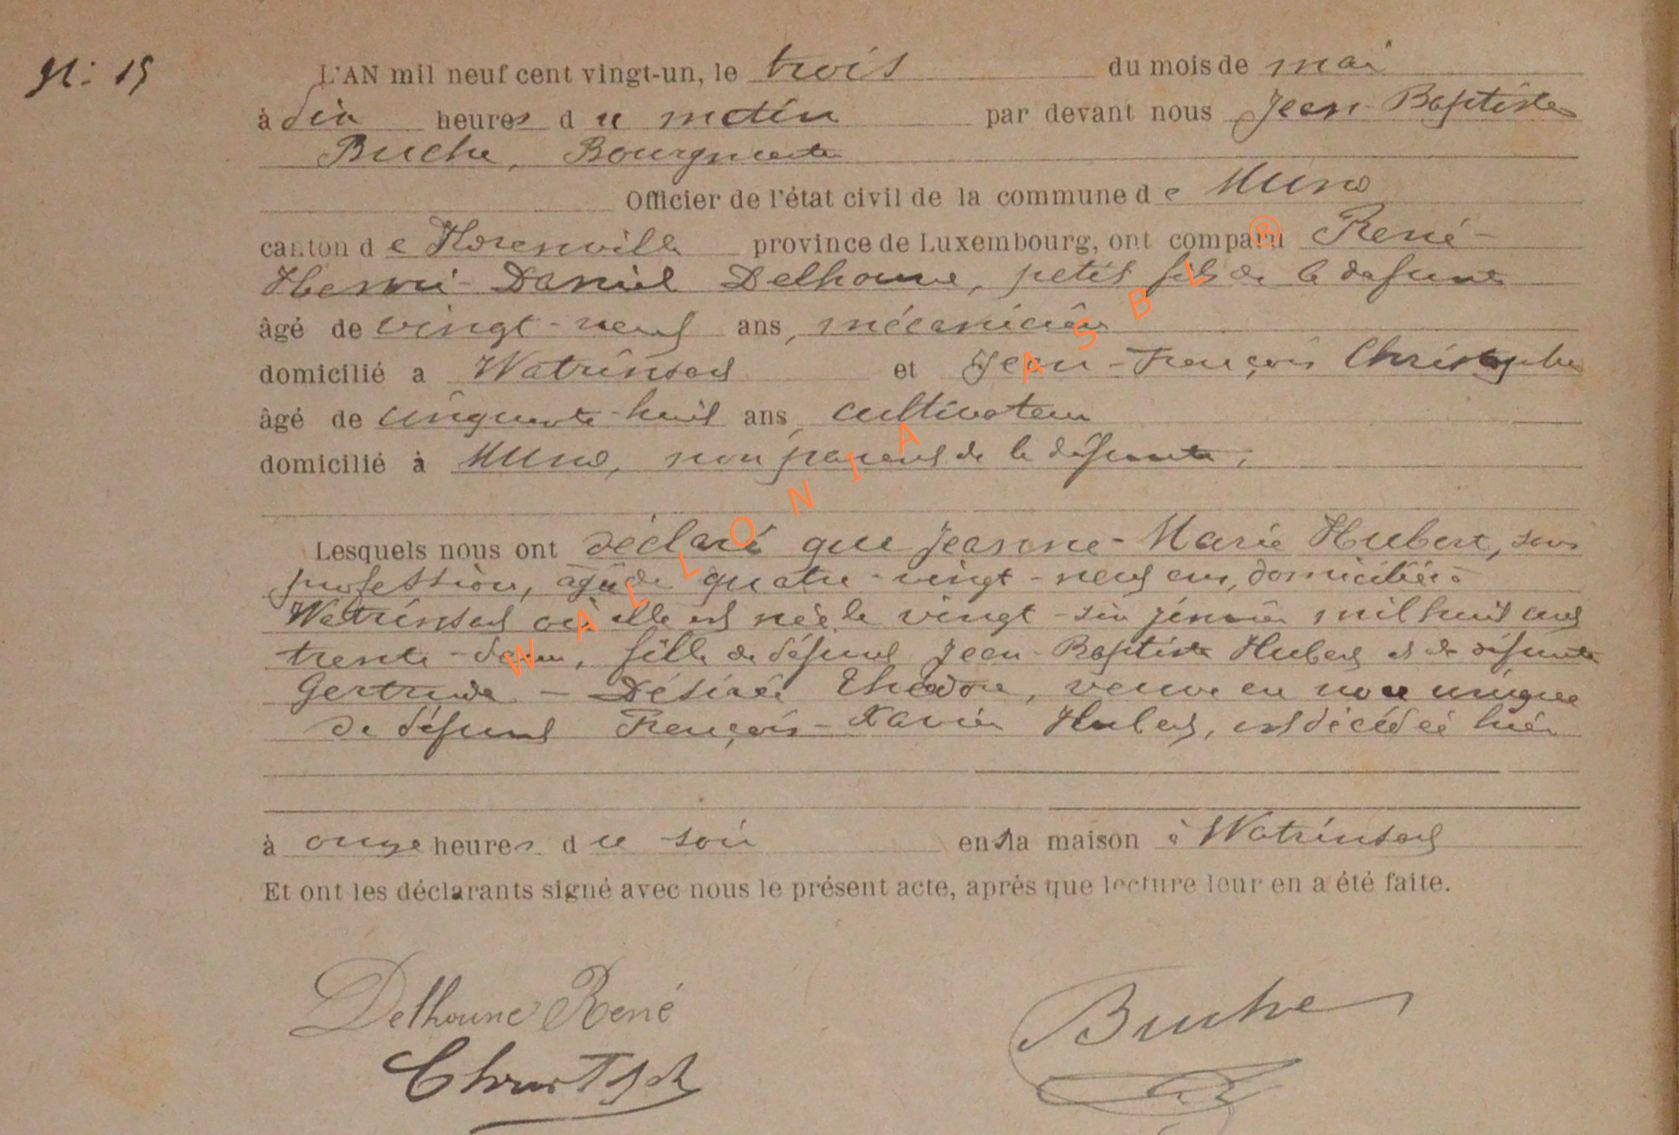 N: 15
L'AN mil neuf cent vingt-un, le trois du mois de mai
à dix heures du matin par devant nous Jean-Baptiste
Buche, Bourgmestre
Officier de l'état civil de la commune de Muno
canton de Florenville province de Luxembourg, ont comparu René-
Henri-Daniel Delhoune, petit fils de la défunte
âgé de vingt-neuf ans, mécanicien
domicilié a Watrinsart et Jean-François Christophe
âgé de cinquante-huit ans, cultivateur
domicilié à Muno, non parent de la défunte;
Lesquels nous ont déclaré que Jeanne-Marie Hubert, sans
profession, âgée de quatre-vingt-neuf ans, domiciliée à
Watrinsart où elle est née le vingt-six janvier mil huit cent
trente-deux, fille de défunt Jean-Baptiste Hubert et de défunte
Gertrude-Désirée Thédore, veuve en noce unique
de défunt François-Xavier Hubert, est décédée hier
à onze heures du soir en sa maison à Watrinsart
Et ont les déclarants signé avec nous le présent acte, après que lecture leur en a été faite.
Delhoune René
Buche
Christoph
WALLONIA ASBL ®